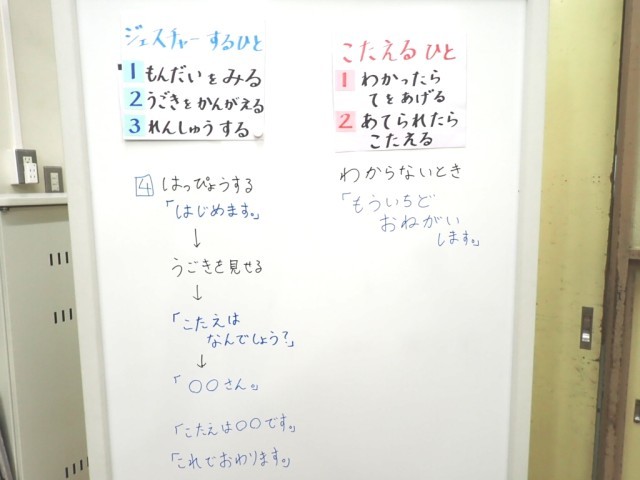 ジェスチャーするひと
1 もんだいをみる
2 うごきをかんがえる
3 れんしゅうする
4 はっぴょうする
「はじめます。」
↓
うごきを見せる
↓
「こたえは
なんでしょう?」
↓
「〇〇さん。」
「こたえは〇〇です。」
「これでおわります。」
こたえるひと
1 わかったら
てをあげる
2 あてられたら
こたえる
わからないとき
「もういちど
おねがい
します。」